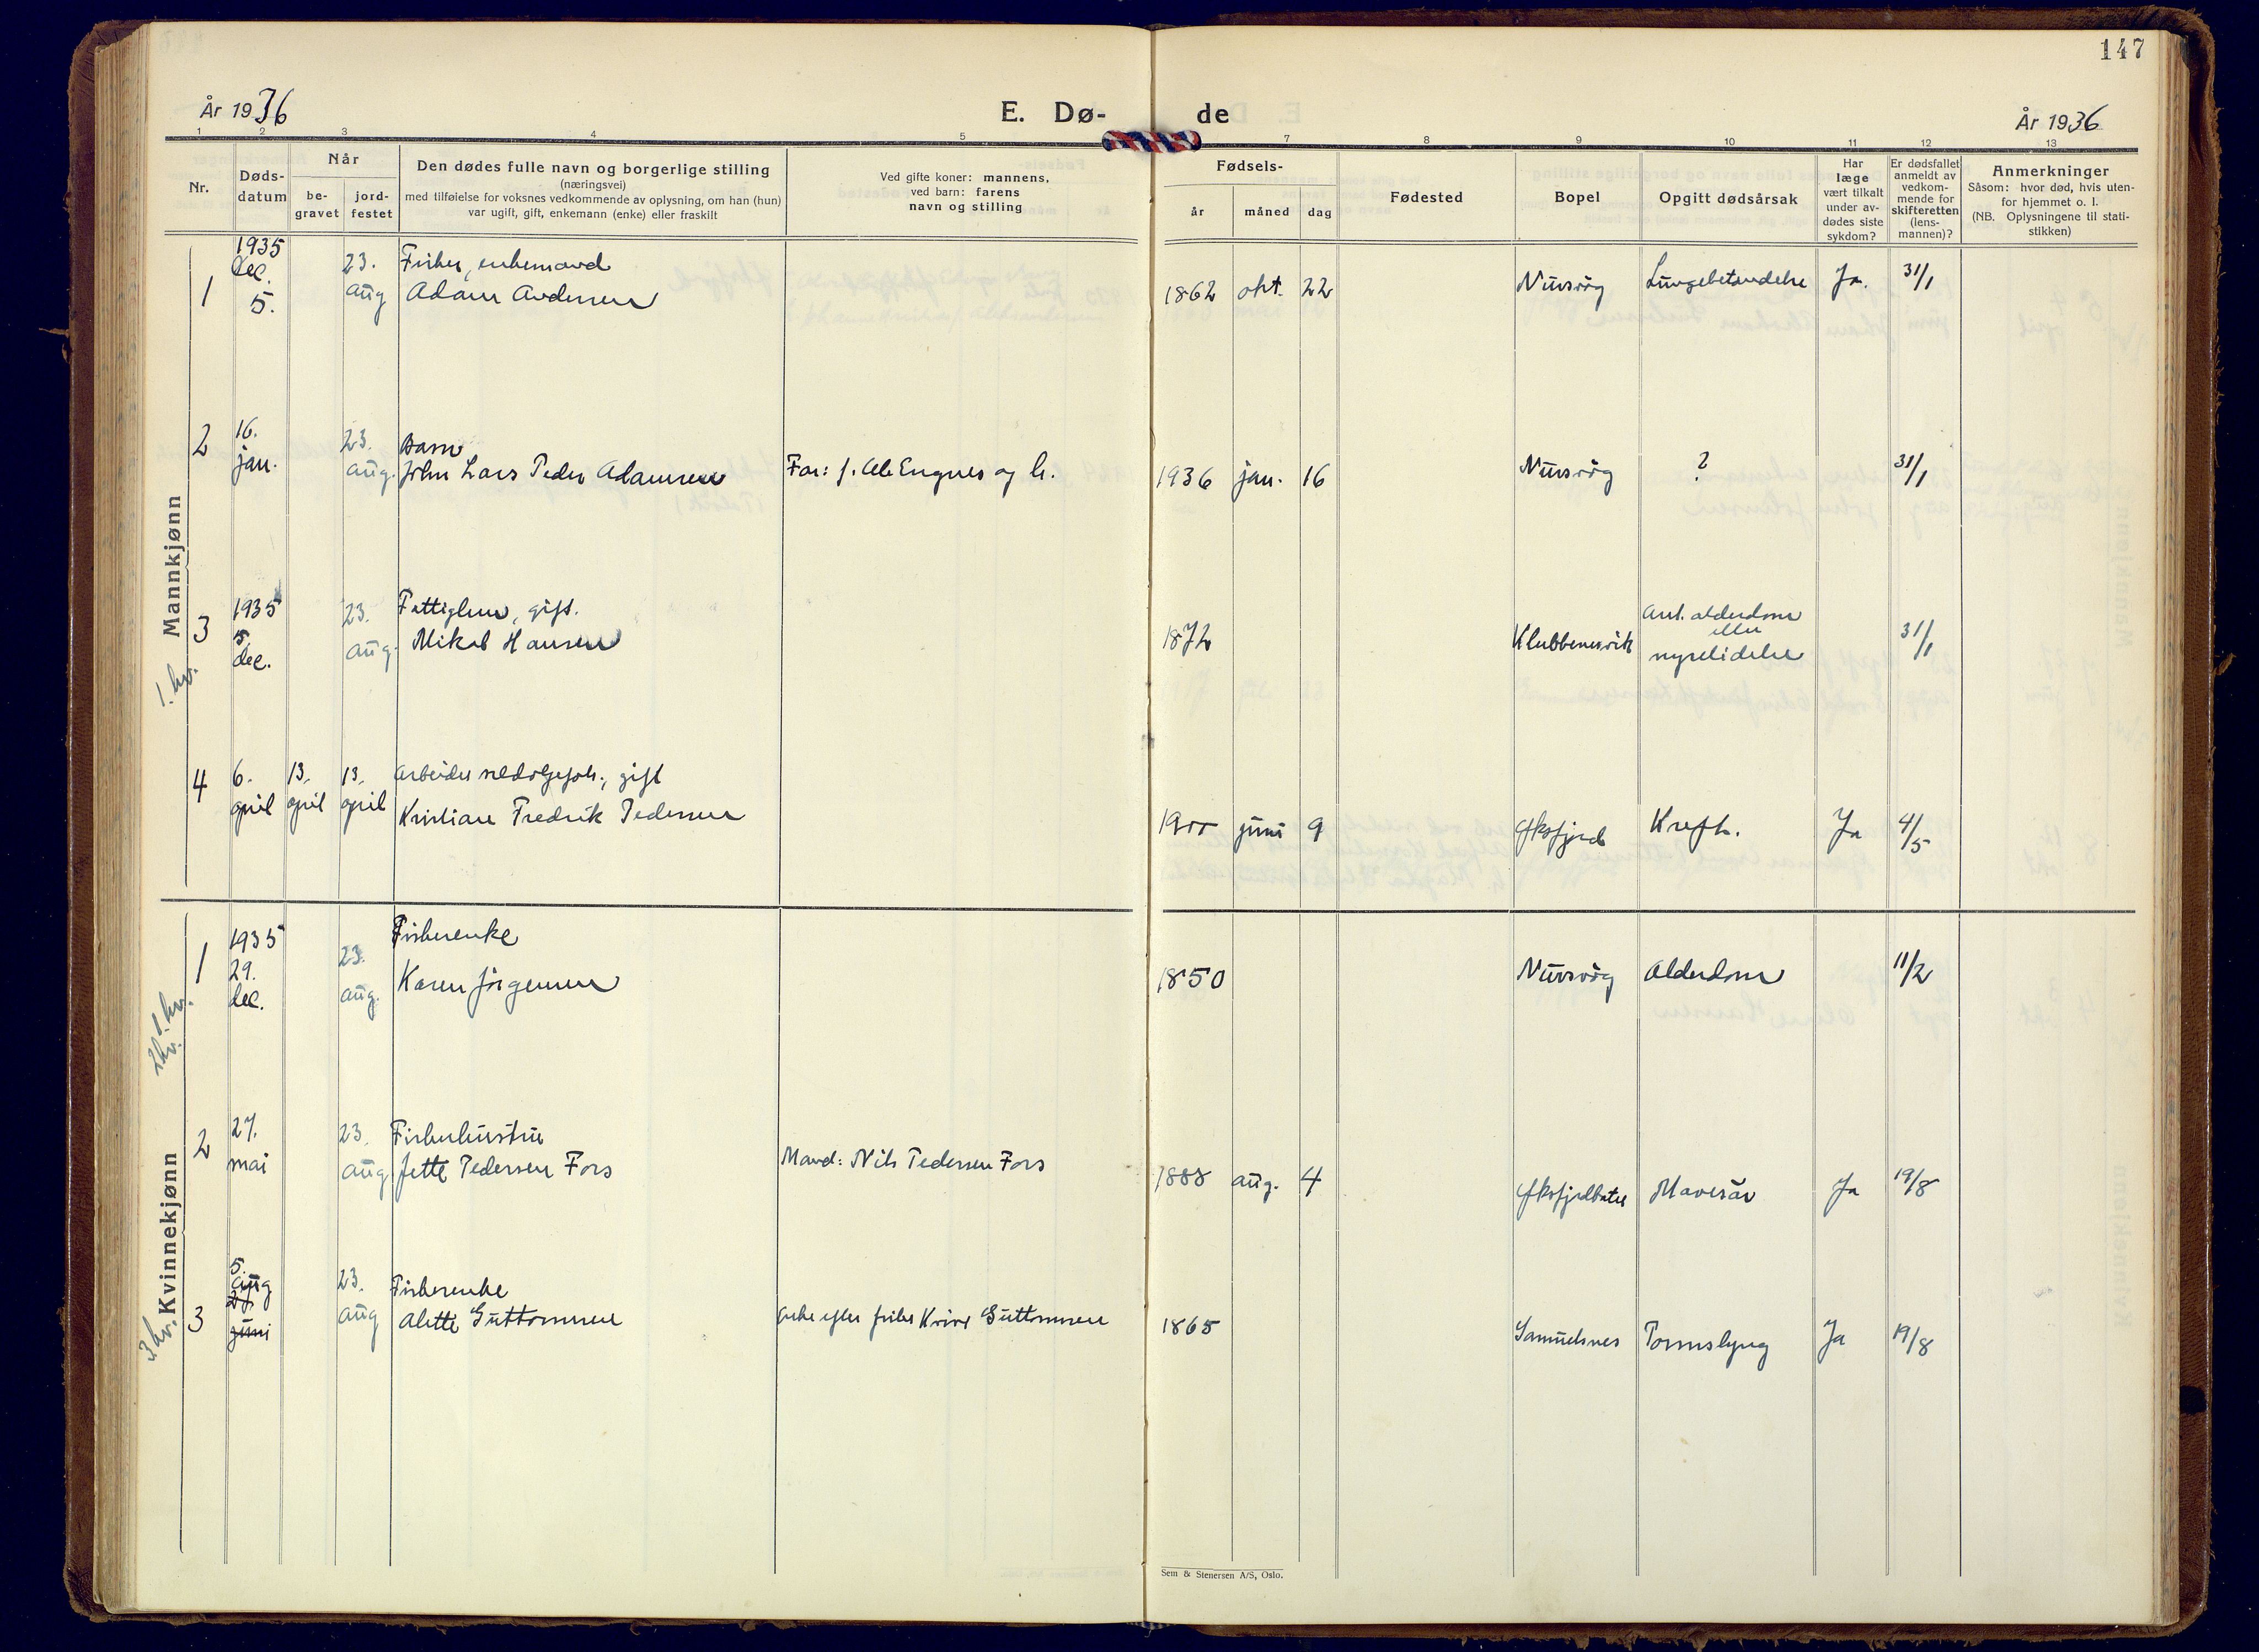 147
År 1936
E. Dø- de
År 1936
1 2 3 4 5 7 8 9 10 11 12 13
Nr.
Døds-
datum
Når
be-
gravet
jord-
festet
Den dødes fulle navn og borgerlige stilling
(næringsvei)
med tilføielse for voksnes vedkommende av oplysning, om han (hun)
var ugift, gift, enkemann (enke) eller fraskilt
Ved gifte koner: mannens,
ved barn: farens
navn og stilling
Fødsels-
år
måned
dag
Fødested
Bopel
Opgitt dødsårsak
Har
læge
vært tilkalt
under av-
dødes siste
sykdom?
Er dødsfallet
anmeldt av
vedkom-
mende for
skifteretten
(lens-
mannen)?
Anmerkninger
Såsom: hvor død, hvis uten-
for hjemmet o. l.
(NB. Oplysningene til stati-
stikken)
Mannkjønn
1
1935
dec.
5.
23.
aug
Fisker, enkemand
Adam Andersen
1862 okt. 22
Nuvsvåg
Lungebetændelse
Ja.
31/1
2
16.
jan.
23.
aug.
Barn
John Lars Peder Adamsen
Far: f. Ole Engnes og h.
1936 jan. 16
Nuvsvåg
?
31/1
3
1935
5.
dec.
23.
aug.
Fattiglem, gift.
Mikal Hansen
1872
Klubbenesvik
Ant. alderdom
eller
nyrelidelse
31/1
1. kv.
4
6.
april
13.
april
13.
april
Arbeider , gift
Kristian Fredrik Pedersen
1900 juni 9
Øksfjord
Kreft.
Ja
4/5
Kvinnekjønn
1
1935
29.
dec.
23.
aug.
Fiskerenke
Karen Jørgensen
1850
Nuvsvåg
Alderdom
11/2
1. kv.
2 kv.
2
27.
mai
23.
aug
Fiskerhustru
Jette Pedersen Fors
Mand: Nils Pedersen Fors
1888 aug. 4
Øksfjordbotn
Mavesår
Ja
19/8
3 kv.
3
5.
aug
27
juni
23.
aug
Fiskerenke
Alette Guttormsen
Enke efter fisker Guttormsen
1865
Samuelsnes
Tarmslyng
Ja
19/8
Sem & Stenersen A/S, Oslo.